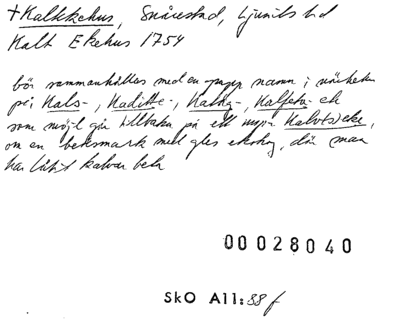 +Kalkkehus, Snårestad, Ljunits hd
Kalt Ekehus 1754
bör sammanhållas med en grupp namn i närheten
på Kals-, Kaditte-, Kalng-, Kaljeta- ek
som möjl går tillbaka på ett Kalvts)eke,
om en betesmark med gles ekskog, där man
har låtit kalvar beta
00028040
SkO All: 38 f